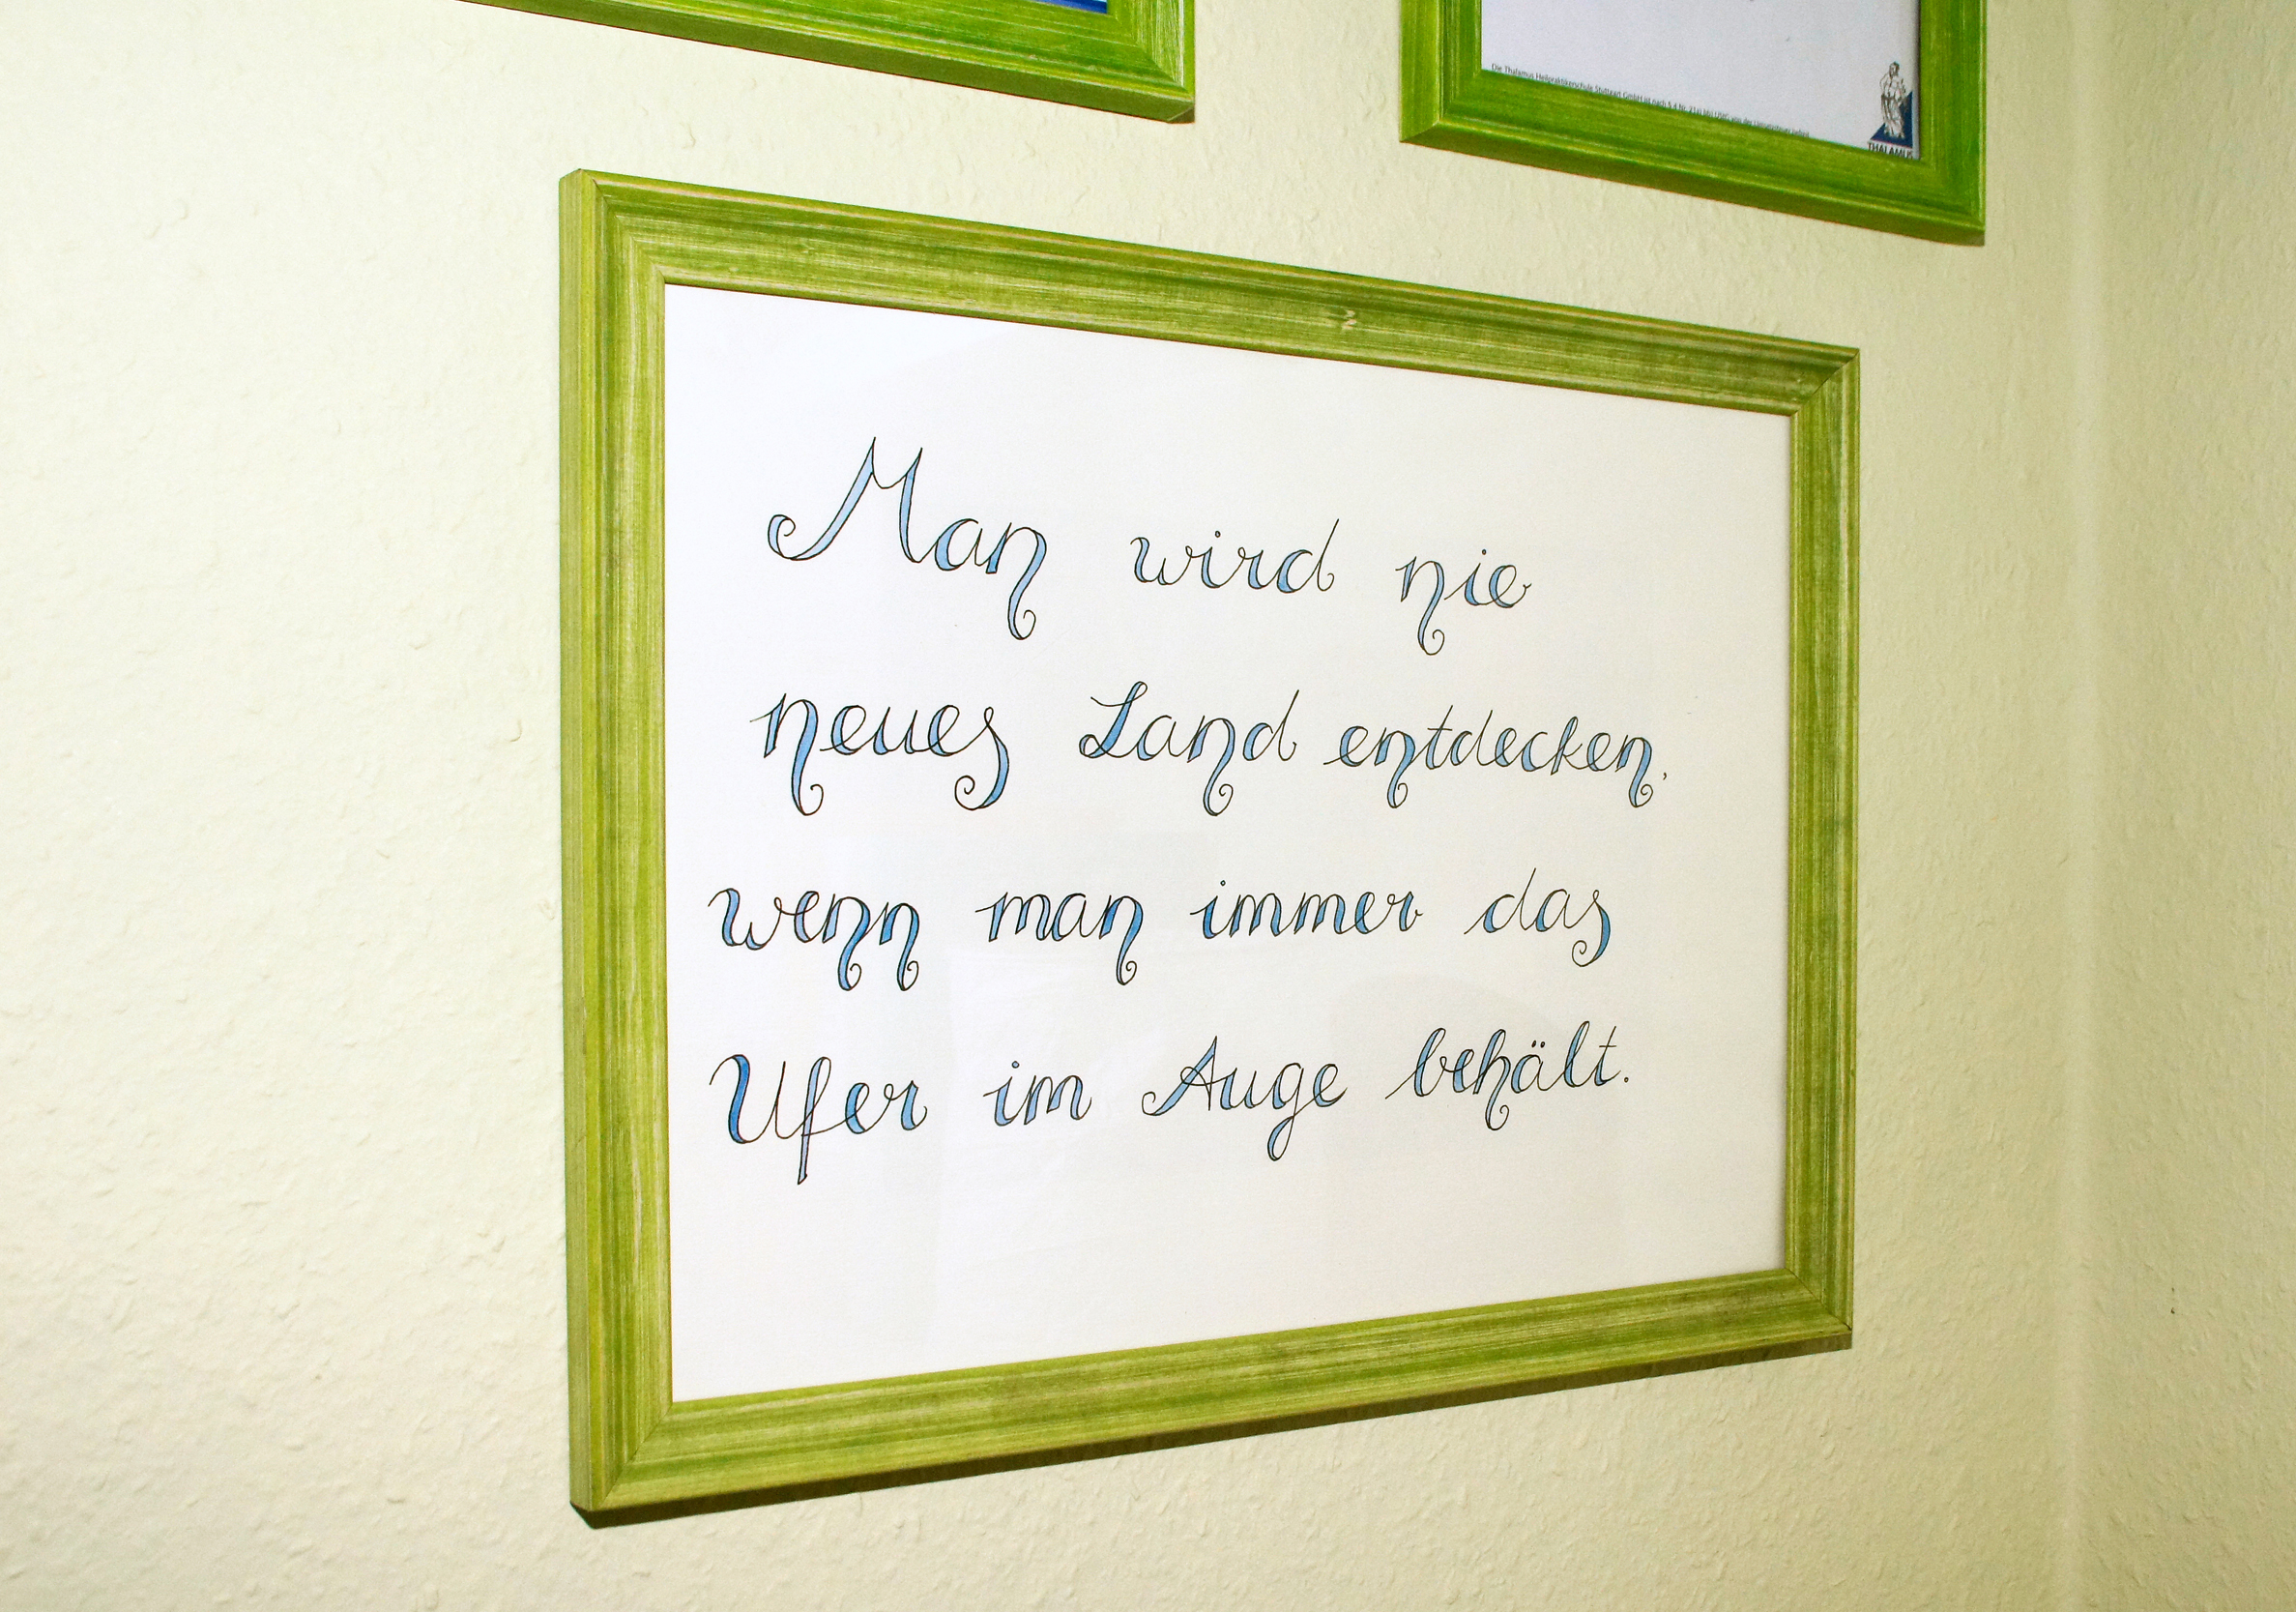 Die Thalamus Heilpraktikerschule Stuttgart GmbH ist nach § 4 Nr. 21
THALAMUS
Man wird nie
neues Land entdecken,
wenn man immer das
Ufer im Auge behält.